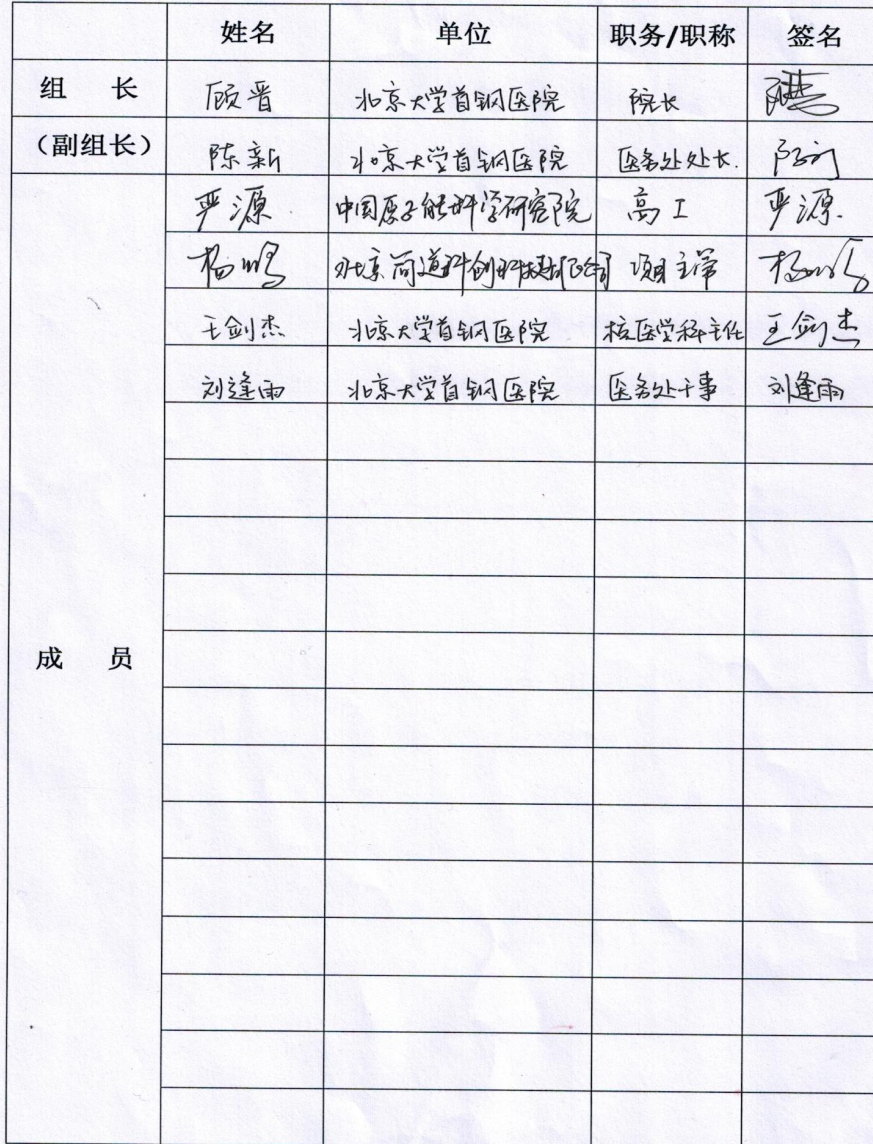 姓名 单位 职务/职称 签名
组 长 顾晋 北京大学首钢医院 院长
(副组长) 陈新 北京大学首钢医院 医务处处长.
严源 中国原子能科学研究院 高工 严源.
杨鹏 项目主管 杨鹏
王剑杰 北京大学首钢医院 核医学科主任 王剑杰
刘逢雨 北京大学首钢医院 医务处干事 刘逢雨
成 员